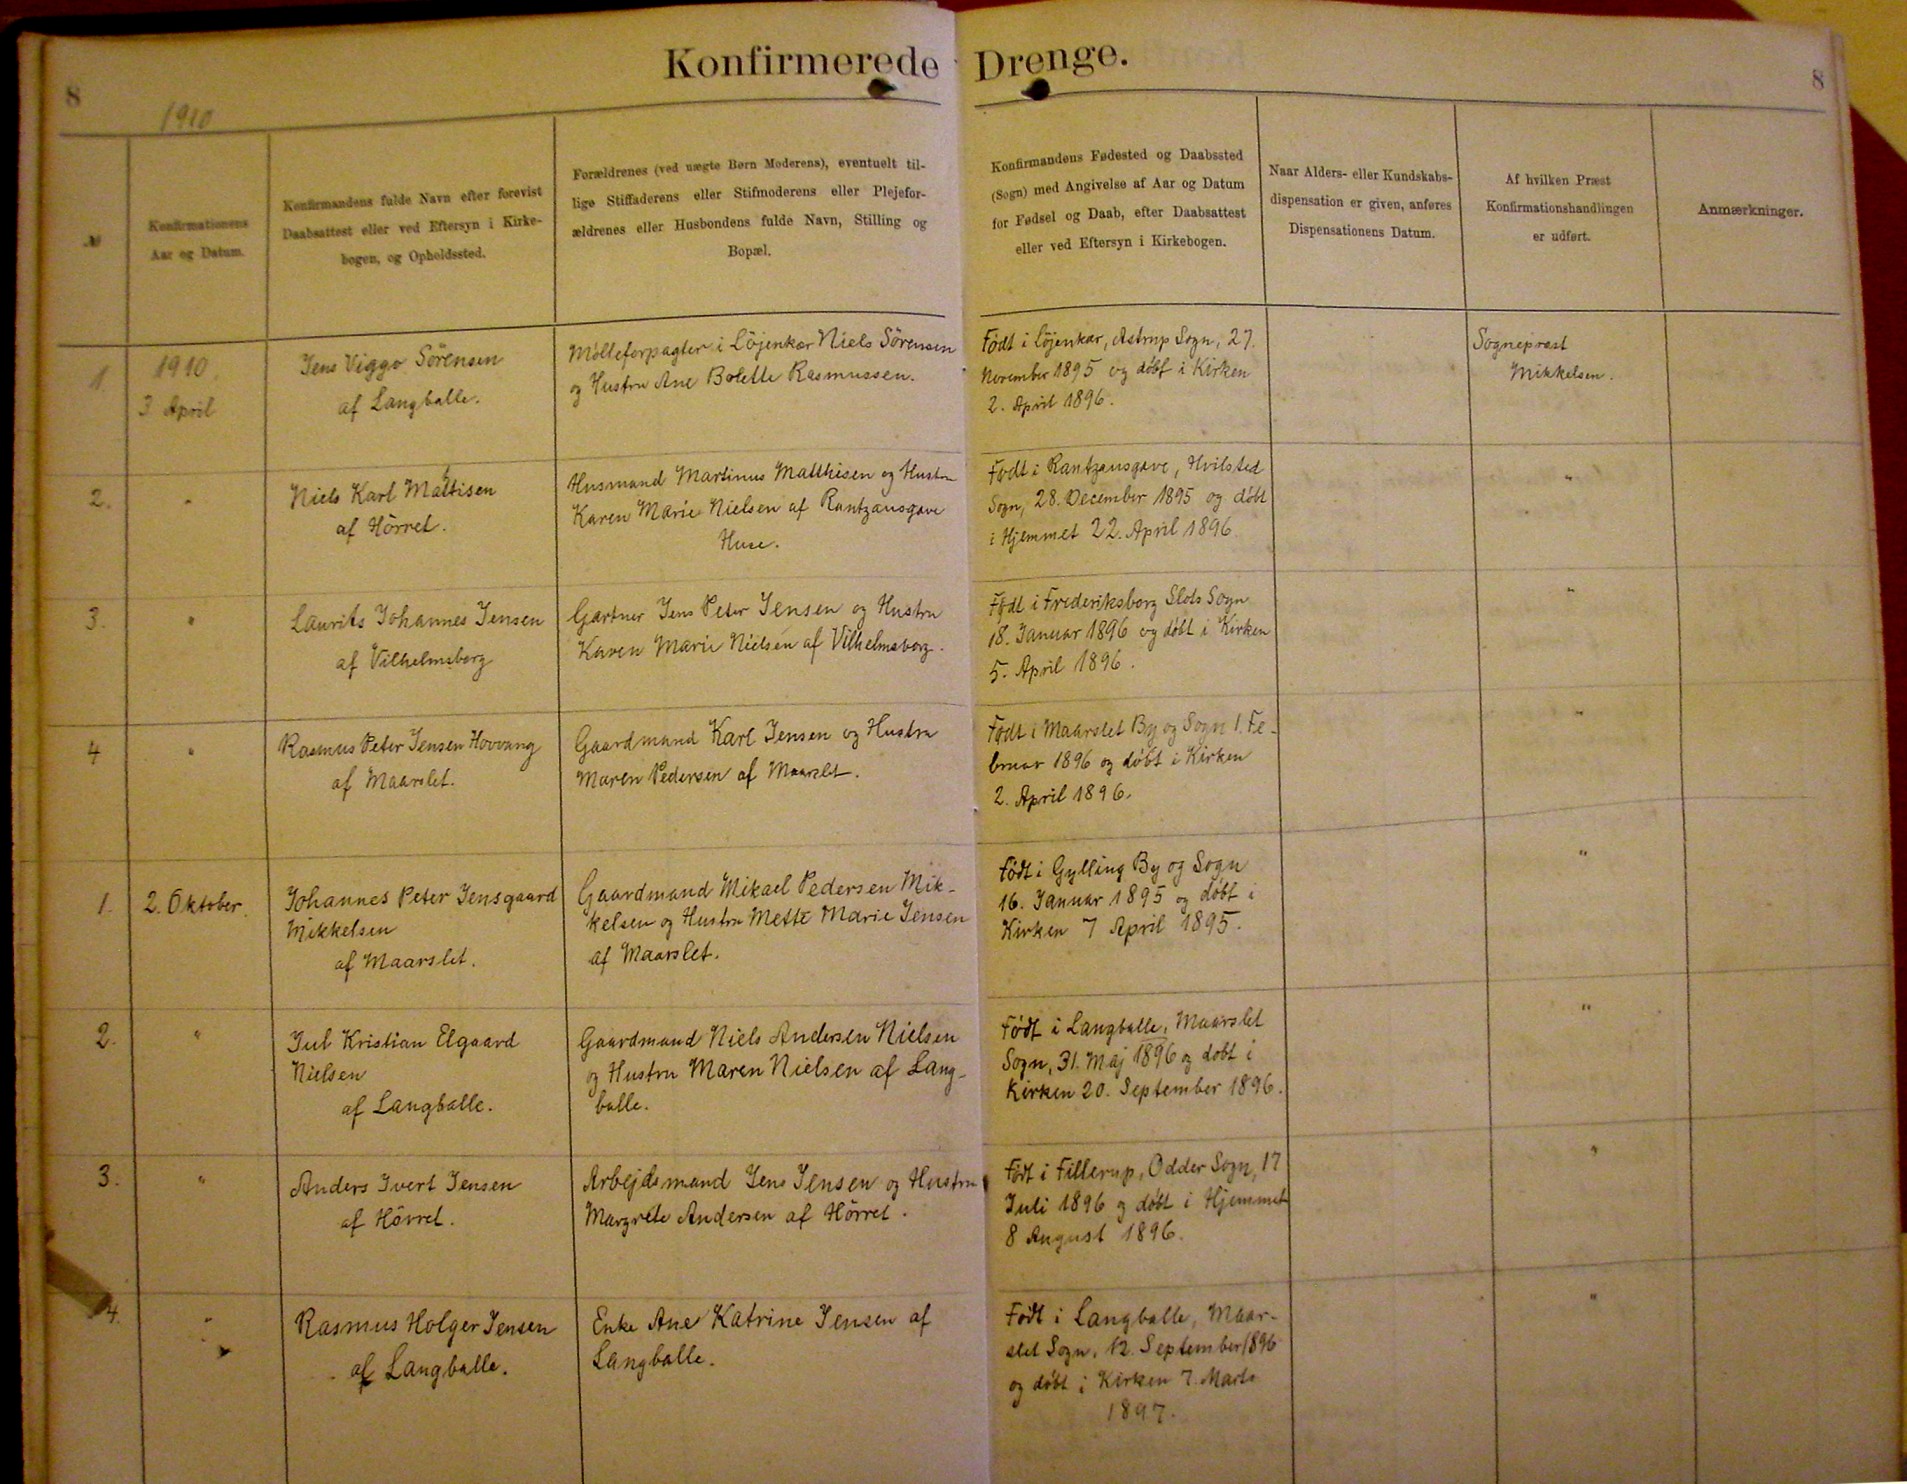 Konfirmerede Drenge.
8
8
1910
№
Konfirmationens
Aar og Datum.
Konfirmandens fulde Navn efter forevist
Daabsattest eller ved Eftersyn i Kirke-
bogen, og Opholdssted.
Forældrenes (ved uægte Børn Moderens), eventuelt til-
lige Stiffaderens eller Stifmoderens eller Plejefor-
ældrenes eller Husbondens fulde Navn, Stilling og
Bopæl.
Konfirmandens Fødested og Daabssted
(Sogn) med Angivelse af Aar og Datum
for Fødsel og Daab, efter Daabsattest
eller ved Eftersyn i Kirkebogen.
Naar Alders- eller Kundskabs-
dispensation er given, anføres
Dispensationens Datum.
Af hvilken Præst
Konfirmationshandlingen
er udført.
Anmærkninger.
1
1910.
3 April
Jens Viggo Sörensen
af Langballe.
Mølleforpagter i Löjenkær Niels Sörensen
og Hustru Ane Bolette Rasmussen.
Født i Löjenkær, Astrup Sogn, 27.
November 1895 og döbt i Kirken
2. April 1896.
Sognepræst
Mikkelsen.
2.
"
Niels Karl Mattisen
af Hörret.
Husmand Martinus Matthisen og Hustru
Karen Marie Nielsen af Rantzausgave
Huse.
Født i Rantzausgave, Hvilsted
Sogn, 28. December 1895 og döbt
i Hjemmet 22. April 1896
"
3.
"
Laurits Johannes Jensen
af Vilhelmsborg
Gartner Jens Peter Jensen og Hustru
Karen Marie Nielsen af Vilhelmsborg.
Født i Frederiksborg Slots Sogn
18. Januar 1896 og döbt i Kirken
5. April 1896.
"
4
"
Rasmus Peter Jensen Hovvang
af Maarslet.
Gaardmand Karl Jensen og Hustru
Maren Pedersen af Maarslet.
Født i Maarslet By og Sogn 1. Fe-
bruar 1896 og döbt i Kirken
2. April 1896.
"
1.
2. Oktober.
Johannes Peter Jensgaard
Mikkelsen
af Maarslet.
Gaardmand Mikael Pedersen Mik-
kelsen og Hustru Mette Marie Jensen
af Maarslet.
Födt i Gylling By og Sogn
16. Januar 1895 og döbt i
Kirken 7 April 1895.
"
2.
"
Jul Kristian Elgaard
Nielsen
af Langballe.
Gaardmand Niels Andersen Nielsen
og Hustru Maren Nielsen af Lang-
balle.
Födt i Langballe, Maarslet
Sogn, 31. Maj 1896 og döbt i
Kirken 20. September 1896.
"
3.
"
Anders Ivert Jensen
af Hörret.
Arbejdsmand Jens Jensen og Hustru
Margrete Andersen af Hörret.
Födt i Fillerup, Odder Sogn, 17
Juli 1896 og döbt i Hjemmet
8 August 1896.
"
4.
"
Rasmus Holger Jensen
af Langballe.
Enke Ane Katrine Jensen af
Langballe.
Födt i Langballe, Maar-
slet Sogn, 12. September 1896
og döbt i Kirken 7. Marts
1897.
"